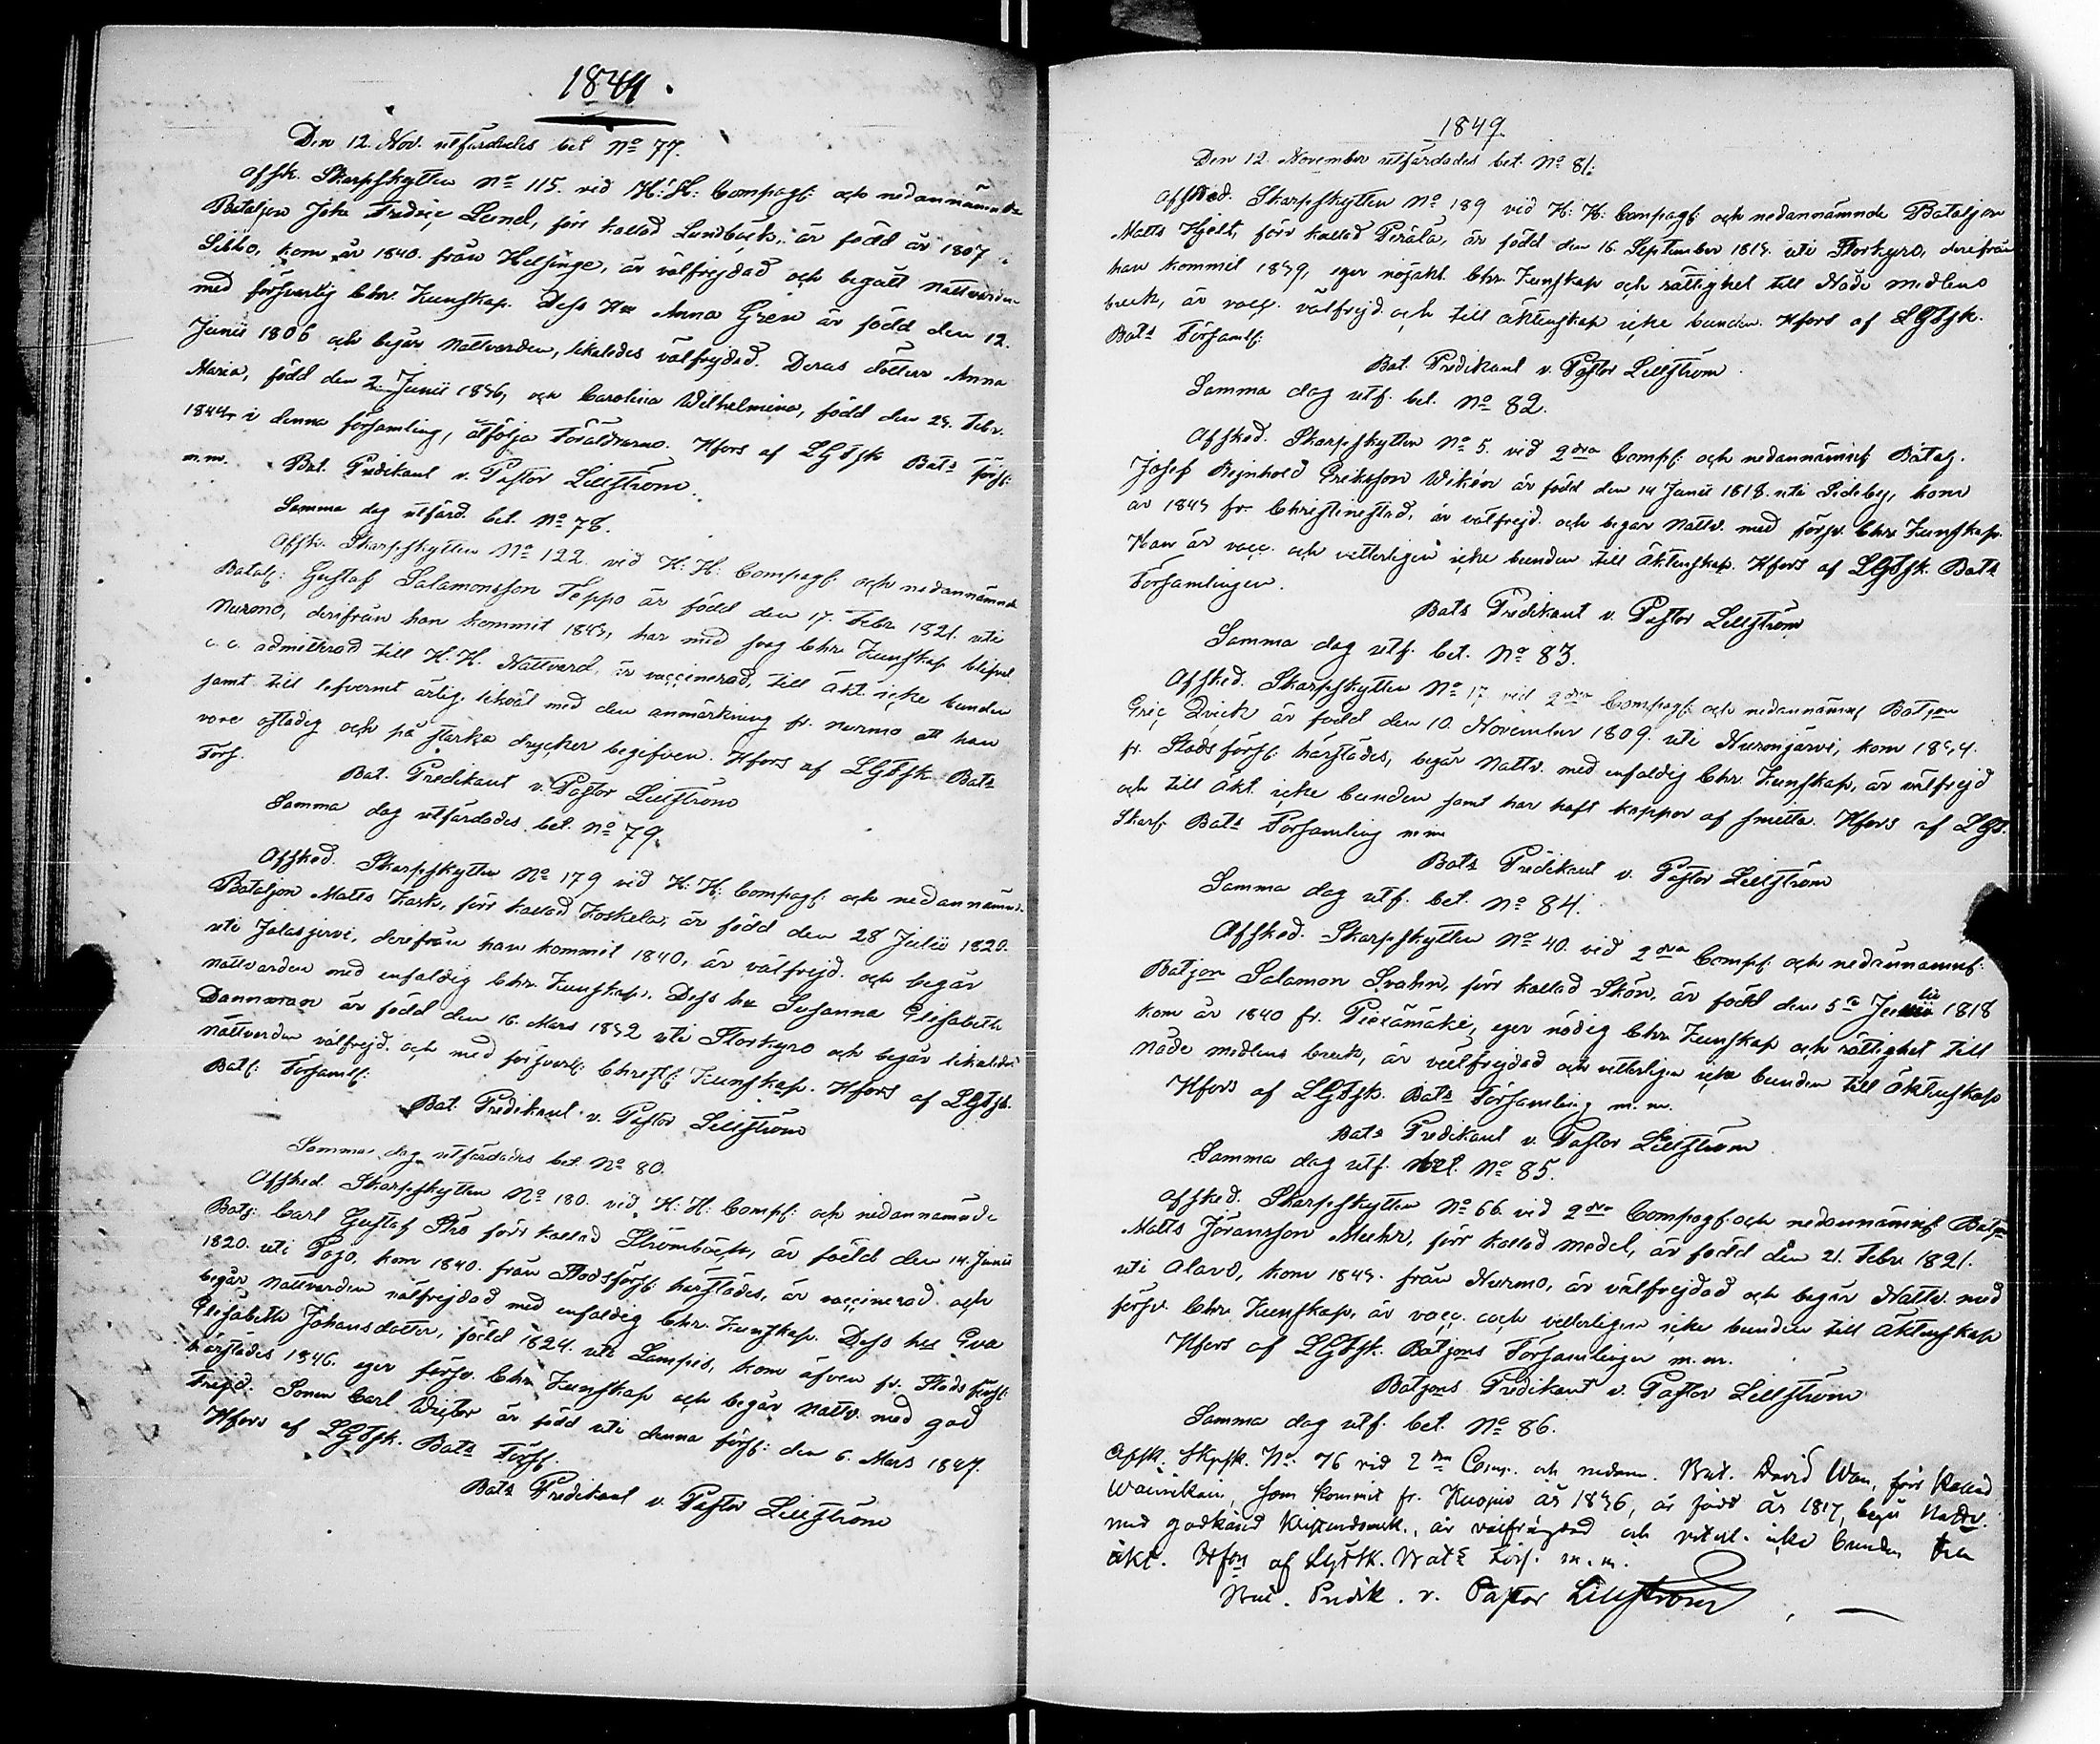 1849.
Den 12. Nov. utfärdades bet No 77.
Afsk. Skarpskytten No 115. vid H: H: Compagf: och nedannämnde
Bataljon Joh: Fredric Lund, förr kallad Lundbäck, är född år 1807 i
Sibbo, kom år 1840. från Helsinge, är välfrejdad och begått nattvarden
med försvarlig Chr. Kunskap. Dess Hu Anna Gren är född den 12.
Junii 1806 och begår nattvarden, likaledes välfrejdad. Deras döttrar Anna
Maria, född den 2. Junii 1836, och Carolina Wilhelmina, född den 29. Febr.
1844, i denna församling, åtfölja Föräldrarne. Hfors af LGFSk Bats förs:
m.m. Bat. Predikant v. Pastor Lillström.
Samma dag utfärd. bet. No 78.
Afsk. Skarpskytten No 122. vid H: H: Compagf: och nedannämnde
Batalj: Gustaf Salamonsson Teppo är född den 17. Febr. 1821. uti
Nurmo, derifrån han kommit 1845, har med svag Chr. Kunskap blifvit
admitterad till H. H. Nattvard, är vaccinerad, till äkt. icke bunden
samt till lefvernet ärlig, likväl med den anmärkning fr. Nurmo att han
vore ostadig och på starka drycker begifven. Hfors af LGFSk Bats
Förs.
Bat. Predikant v. Pastor Lillström
Samma dag utfärdades bet. No 79.
Afsked. Skarpskytten No 179 vid H: H: Compagf: och nedannämnde
Bataljon Matts Kask, förr kallad Koskela, är född den 28 Julii 1820.
uti Jalasjervi, derifrån han kommit 1840, är välfrejd. och begår
nattvarden med enfaldig Chr. Kunskap. Dess hu Susanna Elisabeth
Dannman är född den 16. Mars 1832 uti Storkyro och begår likaledes
nattvarden välfrejd. och med försvarl: Christl: Kunskap. Hfors af LGFSk.
Bats: Församl:
Bat. Predikant v. Pastor Lillström
Samma dag utfärdades bet. No 80.
Afsked. Skarpskytten No 180. vid H: H: Compf: och nedannämnde
Batj: Carl Gustaf Strö förr kallad Strömbäck, är född den 14. Junii
1820. uti Pojo, kom 1840. från Stadsförs: härstädes, är vaccinerad och
begår nattvarden välfrejdad med enfaldig Chr. Kunskap. Dess hu Eva
Elisabeth Johansdotter, född 1824. uti Lampis, kom äfven fr. Stads förs:
härstädes 1846. eger försv. Chr. Kunskap och begår nattv. med god
Frejd. Sonen Carl Victor är född uti denna förs: den 6. Mars 1847.
Hfors af LGFSk. Bats Förs:
Bats Predikant v. Pastor Lillström
1849.
Den 12. November utfärdades bet. No 81.
Afsked. Skarpskytten No 189 vid H: H: Compagf: och nedannämnde Bataljon
Matts Hjelt, förr kallad Perälä, är född den 16. September 1819. uti Storkyro, derifrån
han kommit 1839, eger nöjakt. Chr. Kunskap och rättighet till Nåde medlens
bruk, är vacc. välfrejd. och till äktenskap icke bunden. Hfors af LGFSk.
Bats Församl:
Bat. Predikant v. Pastor Lillström.
Samma dag utf. bet. No 82.
Afsked. Skarpskytten No 5. vid 2dra Compf: och nedannämnf: Batalj.
Josef Reinhold Eriksson Wiken är född den 14 Junii 1818. uti Sideby, kom
år 1845 fr. Christinestad, är välfrejd. och begår Nattv. med försv. Chr. Kunskap.
Han är vacc. och vetterligen icke bunden till äktenskap. Hfors af LGFSk. Bats
Församlingen.
Bats Predikant v. Pastor Lillström
Samma dag utf. bet. No 83.
Afsked. Skarpskytten No 17 vid 2dra Compagf: och nedannämnf Batjon
Eric Qvick är född den 10. November 1809. uti Nurmijärvi, kom
fr. Stads förs: härstädes, begår Nattv. med enfaldig Chr. Kunskap, är välfrejd
och till äkt. icke bunden samt har haft koppor af smitta. Hfors af LGF.
Skarp. Bats Församling m m
Bats Predikant v. Pastor Lillström
Samma dag utf. bet. No 84.
Afsked. Skarpskytten No 40. vid 2dra Compf: och nedannämnf:
Batjon Salamon Svahn, förr kallad Skön, är född den 5te Julii 1818
kom år 1840 fr. Pieksämäki, eger nödig Chr. Kunskap och rättighet till
Nåde medlens bruk, är välfrejdad och vetterligen icke bunden till äktenskap
Hfors af LGFSk. Bats Församling m. m.
Bats Predikant v. Pastor Lillström
Samma dag utf. bet. No 85.
Afsked. Skarpskytten No 66. vid 2dra Compagf: och nedannämnf Batjon
Matts Jöransson Muhr, förr kallad Medel, är född den 21. Febr. 1821.
uti Alavo, kom 1845. från Nurmo, är välfrejdad och begår Nattv. med
försv. Chr. Kunskap, är vacc. och vetterligen icke bunden till äktenskap
Hfors af LGFSk. Batjons Församlingen m. m.
Batjons Predikant v. Pastor Lillström
Samma dag utf. bet. No 86.
Afsk. Skpsk. No. 76 vid 2dra Comp. och nedann. Bat. David Wan, förr kallad
Wäinikain, som kommit fr. Kuopio år 1836, är född år 1817, begår Nattv.
med godkänd Kristendomsk., är välfrägdad och veterl. icke bunden till
äkt. Hfors af LGFSk. Bats Förs. m. m.
Bat. Predik. v. Pastor Lillström